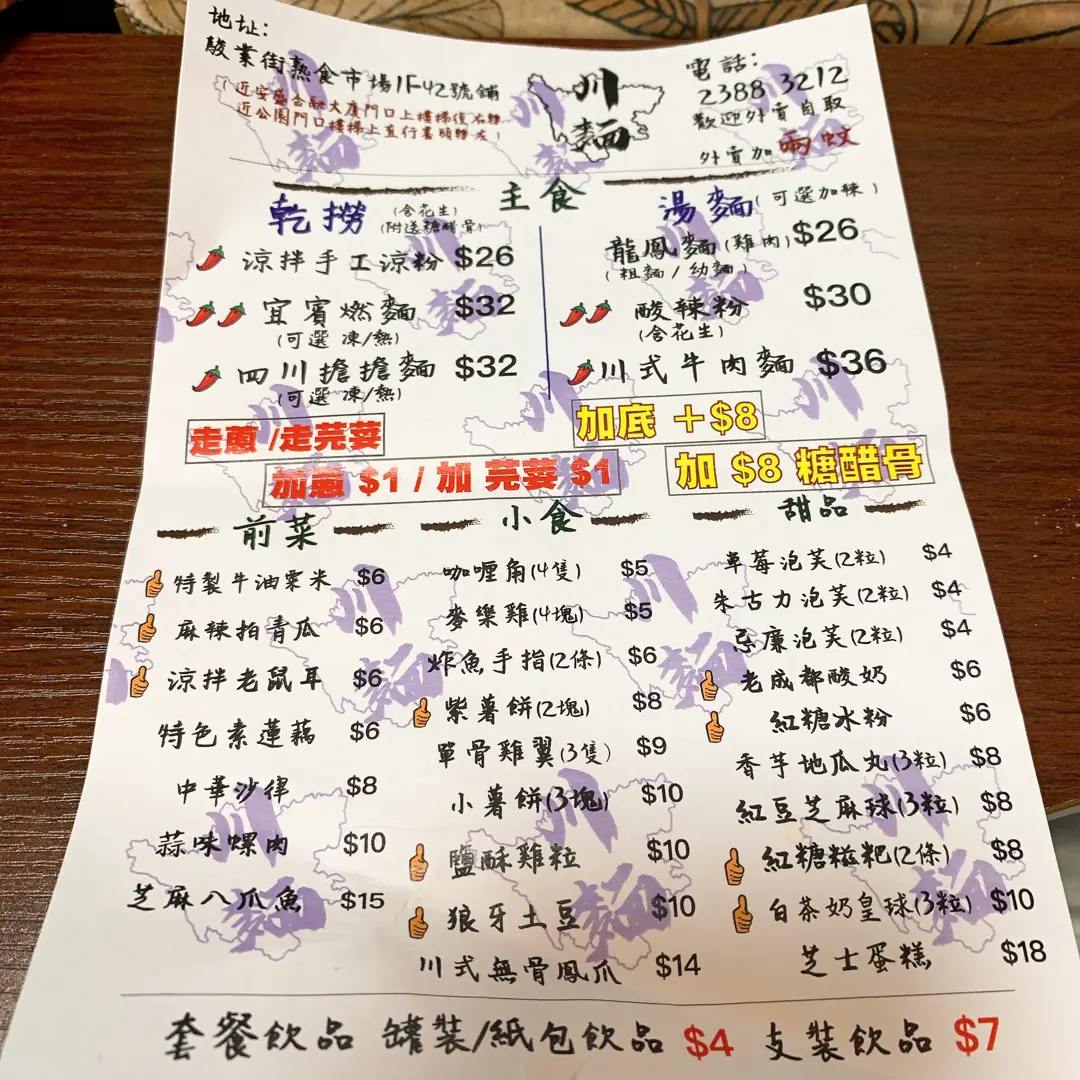 地址:
駿業街熟食市場1F42號舖
(近安盛金融大廈門口上樓梯後右轉
近公園門口樓梯上直行盡頭轉左)
川
麵
電話:
2388 3212
歡迎外賣自取
外賣加兩蚊
主食
乾撈 (含花生)
(附送糖醋骨)
涼拌手工涼粉 $26
宜賓燃麵 $32
(可選 凍/熱)
四川擔擔麵 $32
(可選 凍/熱)
湯麵 (可選加辣)
龍鳳麵(雞肉) $26
(粗麵/幼麵)
酸辣粉 $30
(含花生)
川式牛肉麵 $36
走蔥 /走芫荽
加蔥 $1 / 加 芫荽 $1
加底 +$8
加 $8 糖醋骨
前菜
特製牛油粟米 $6
麻辣拍青瓜 $6
涼拌老鼠耳 $6
特色素蓮藕 $6
中華沙律 $8
蒜味螺肉 $10
芝麻八爪魚 $15
小食
咖喱角(4隻) $5
麥樂雞(4塊) $5
炸魚手指(2條) $6
紫薯餅(2塊) $8
單骨雞翼(3隻) $9
小薯餅(3塊) $10
鹽酥雞粒 $10
狼牙土豆 $10
川式無骨鳳爪 $14
甜品
草莓泡芙(2粒) $4
朱古力泡芙(2粒) $4
忌廉泡芙(2粒) $4
老成都酸奶 $6
紅糖冰粉 $6
香芋地瓜丸(3粒) $8
紅豆芝麻球(3粒) $8
紅糖糍粑(2條) $8
白茶奶皇球(3粒) $10
芝士蛋糕 $18
套餐飲品 罐裝/紙包飲品 $4 支裝飲品 $7